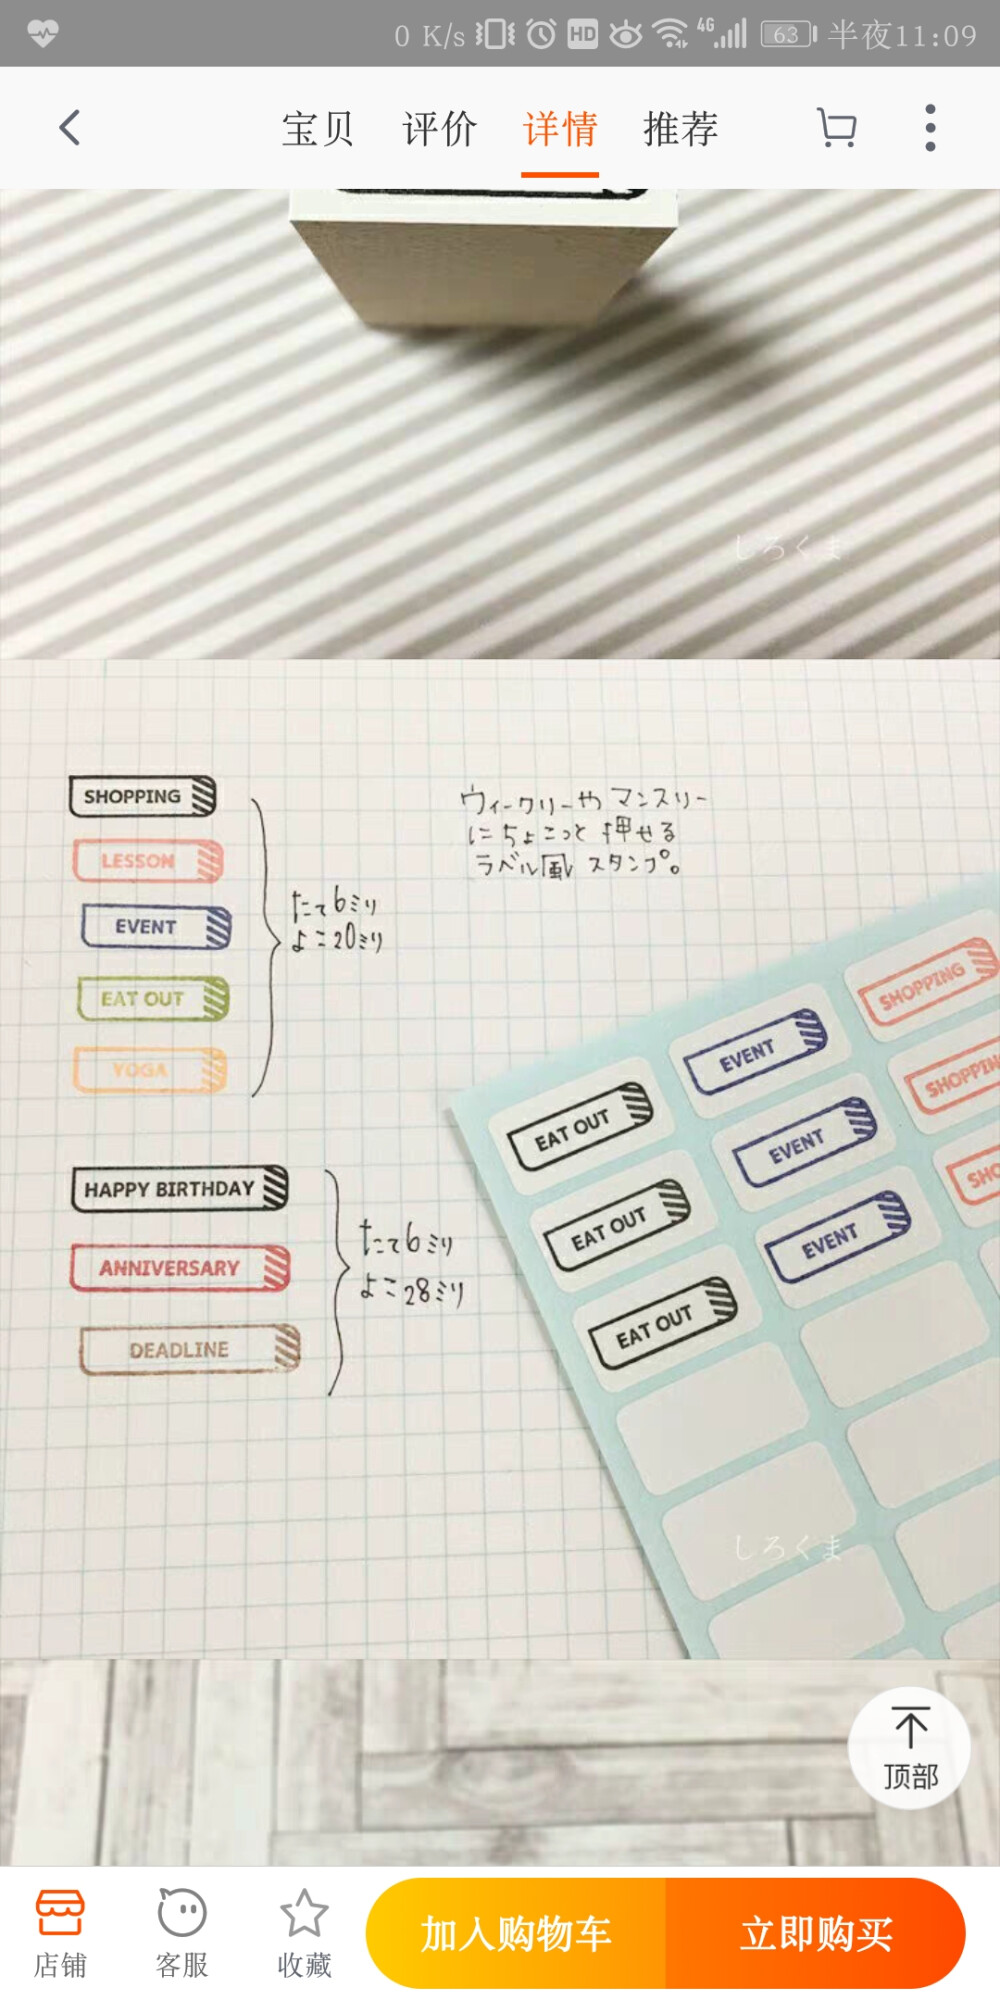 0 K/s HD 4G 63 半夜11:09
宝贝 评价 详情 推荐
しろくま
SHOPPING
LESSON
EVENT
EAT OUT
YOGA
たて6ミリ
よこ20ミリ
ウィークリーや マンスリー
にちょこっと 押せる
ラベル風 スタンプ。
HAPPY BIRTHDAY
ANNIVERSARY
DEADLINE
たて6ミリ
よこ28ミリ
EAT OUT EVENT SHOPPING
EAT OUT EVENT SHOPPIN
EAT OUT EVENT SHO
しろくま
顶部
店铺 客服 收藏 加入购物车 立即购买